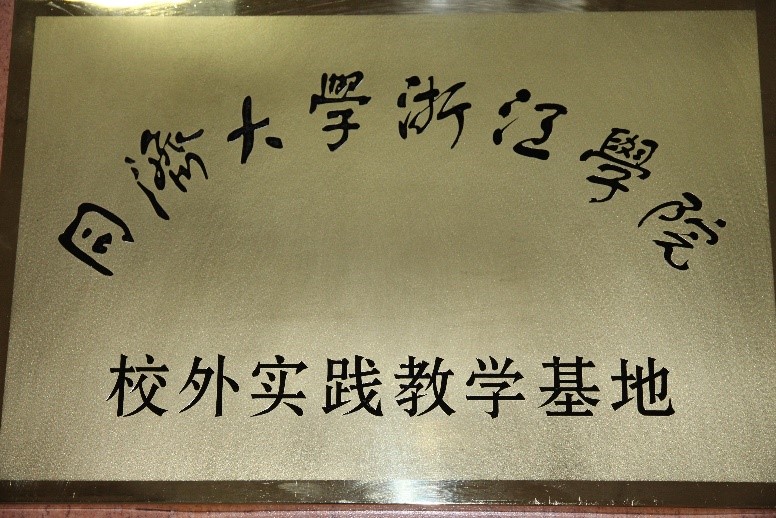 同濟大學浙江學院
校外实践教学基地